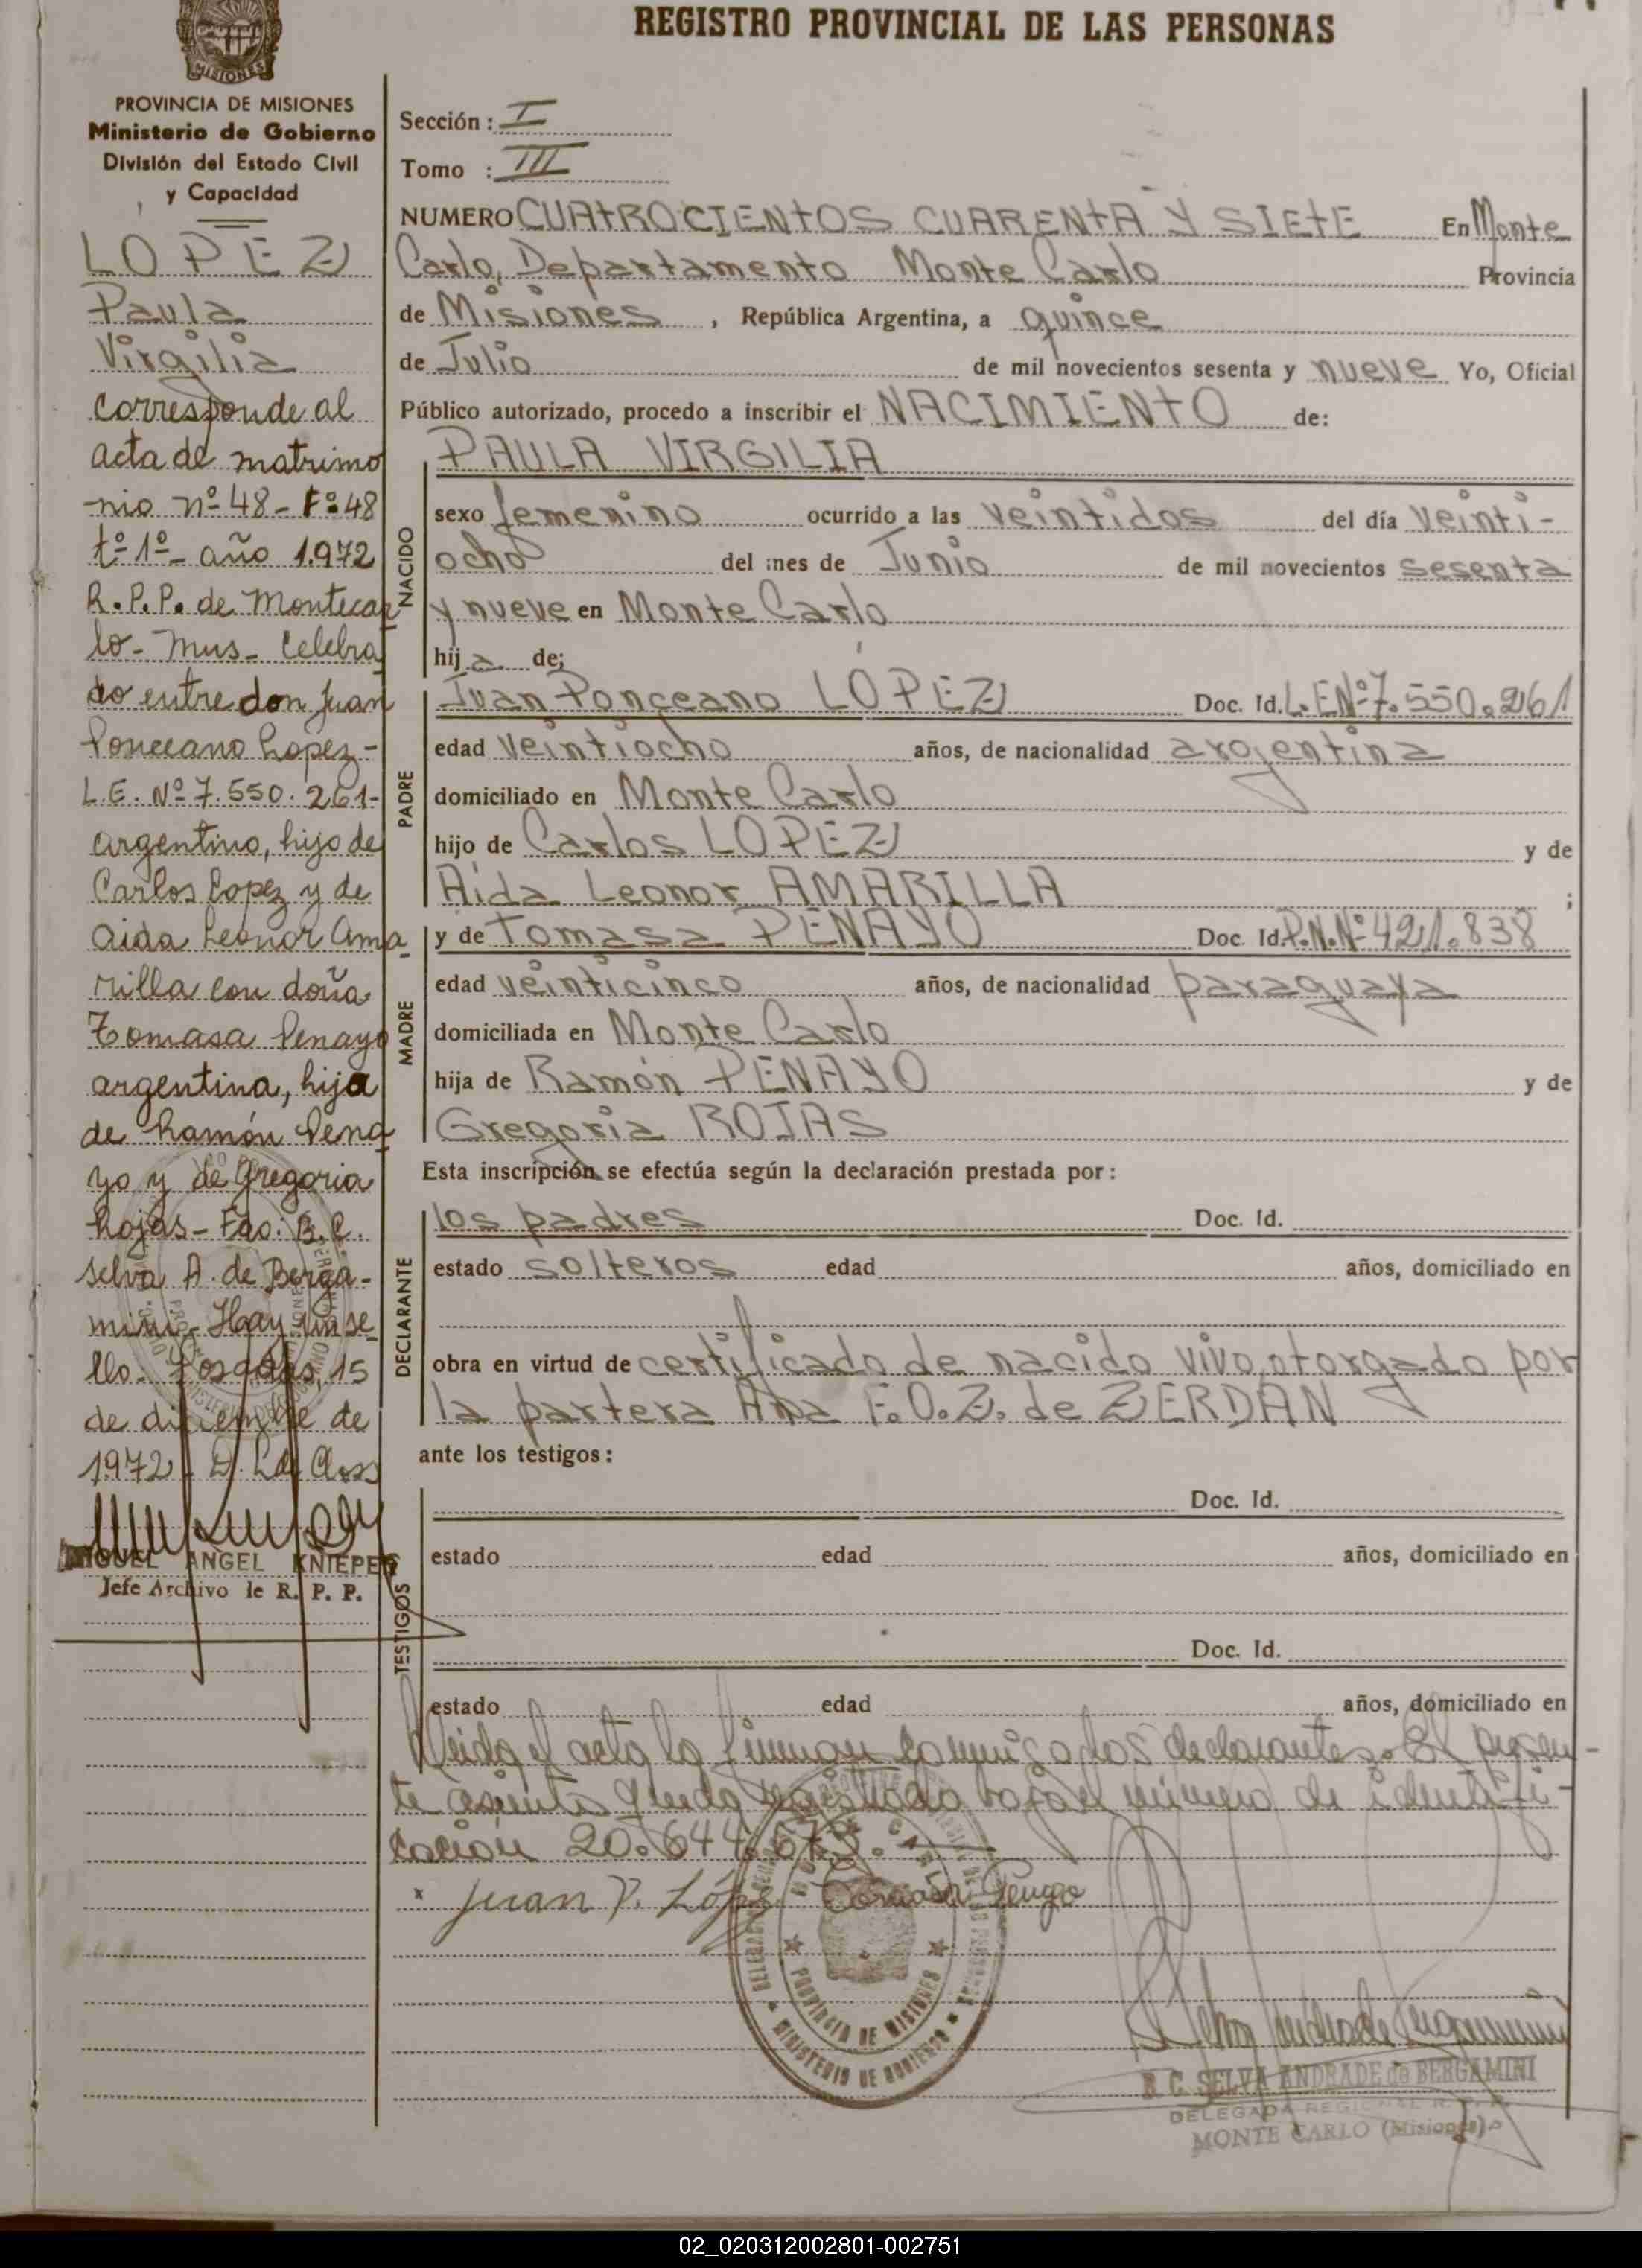 REGISTRO PROVINCIAL DE LAS PERSONAS
MISIONES
PROVINCIA DE MISIONES
Ministerio de Gobierno
División del Estado Civil
y Capacidad
LOPEZ
Paula
Virgilia
corresponde al
acta de matrimo
nio nº 48 - Fº 48
tº 1º - año 1.972
R.P.P. de Montecar
lo - Mns - Celebra
do entre don Juan
Ponceano Lopez -
L.E. Nº 7.550.261-
argentino, hijo de
Carlos Lopez y de
Aida Leonor Ama
rilla con doña
Tomasa Penayo
argentina, hija
de Ramón Pena
yo y de Gregoria
Rojas - Fdo: B.C.
Selva A. de Berga-
mini - Hay un se
llo. Posadas, 15
de diciembre de
1972 -
MIGUEL ANGEL KNIEPER
Jefe Archivo de R. P. P.
Sección : I
Tomo : III
NUMERO CUATROCIENTOS CUARENTA Y SIETE En Monte
Carlo, Departamento Monte Carlo Provincia
de Misiones , República Argentina, a quince
de Julio de mil novecientos sesenta y nueve Yo, Oficial
Público autorizado, procedo a inscribir el NACIMIENTO de:
NACIDO
PAULA VIRGILIA
sexo femenino ocurrido a las veintidos del día veinti-
ocho del mes de Junio de mil novecientos sesenta
y nueve en Monte Carlo
hija de;
PADRE
Juan Ponceano LÓPEZ Doc. Id. L.E.Nº 7.550.261
edad veintiocho años, de nacionalidad argentina
domiciliado en Monte Carlo
hijo de Carlos LOPEZ y de
Aida Leonor AMARILLA ;
MADRE
y de Tomasa PENAYO Doc. Id. P.N.Nº 421.838
edad veinticinco años, de nacionalidad paraguaya
domiciliada en Monte Carlo
hija de Ramón PENAYO y de
Gregoria ROJAS
Esta inscripción se efectúa según la declaración prestada por :
DECLARANTE
los padres Doc. Id.
estado solteros edad años, domiciliado en
obra en virtud de certificado de nacido vivo otorgado por
la partera Ana F.O.Z. de ZERDAN
ante los testigos :
TESTIGOS
Doc. Id.
estado edad años, domiciliado en
Doc. Id.
estado edad años, domiciliado en
Leida el acta la firman conmigo los declarantes. El presen-
te asiento queda registrado bajo el número de identifi-
cación 20.644.673.
x Juan P. López Tomasa Penayo
PROVINCIA DE MISIONES
MINISTERIO DE GOBIERNO
B. C. SELVA ANDRADE de BERGAMINI
DELEGADA REGIONAL R. P. P.
MONTE CARLO (Misiones)
02_020312002801-002751